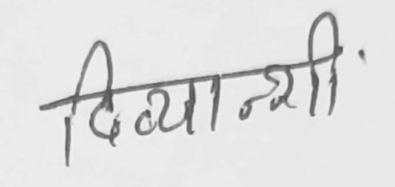 दिव्यान्शी